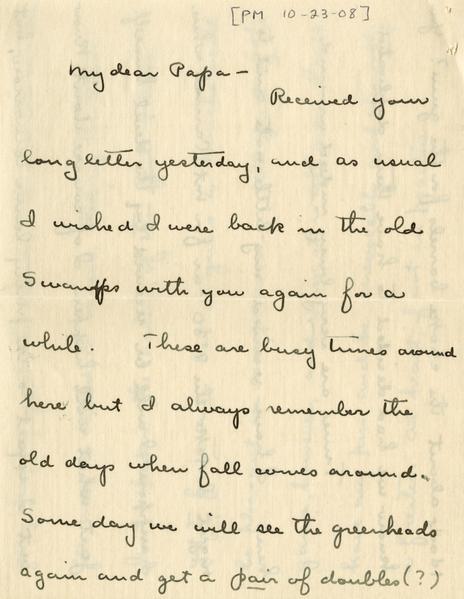 [PM 10-23-08]
My dear Papa —
Received your
long letter yesterday, and as usual
I wished I were back in the old
Swamps with you again for a
while. These are busy times around
here but I always remember the
old days when fall comes around.
Some day we will see the greenheads
again and get a pair of doubles(?)